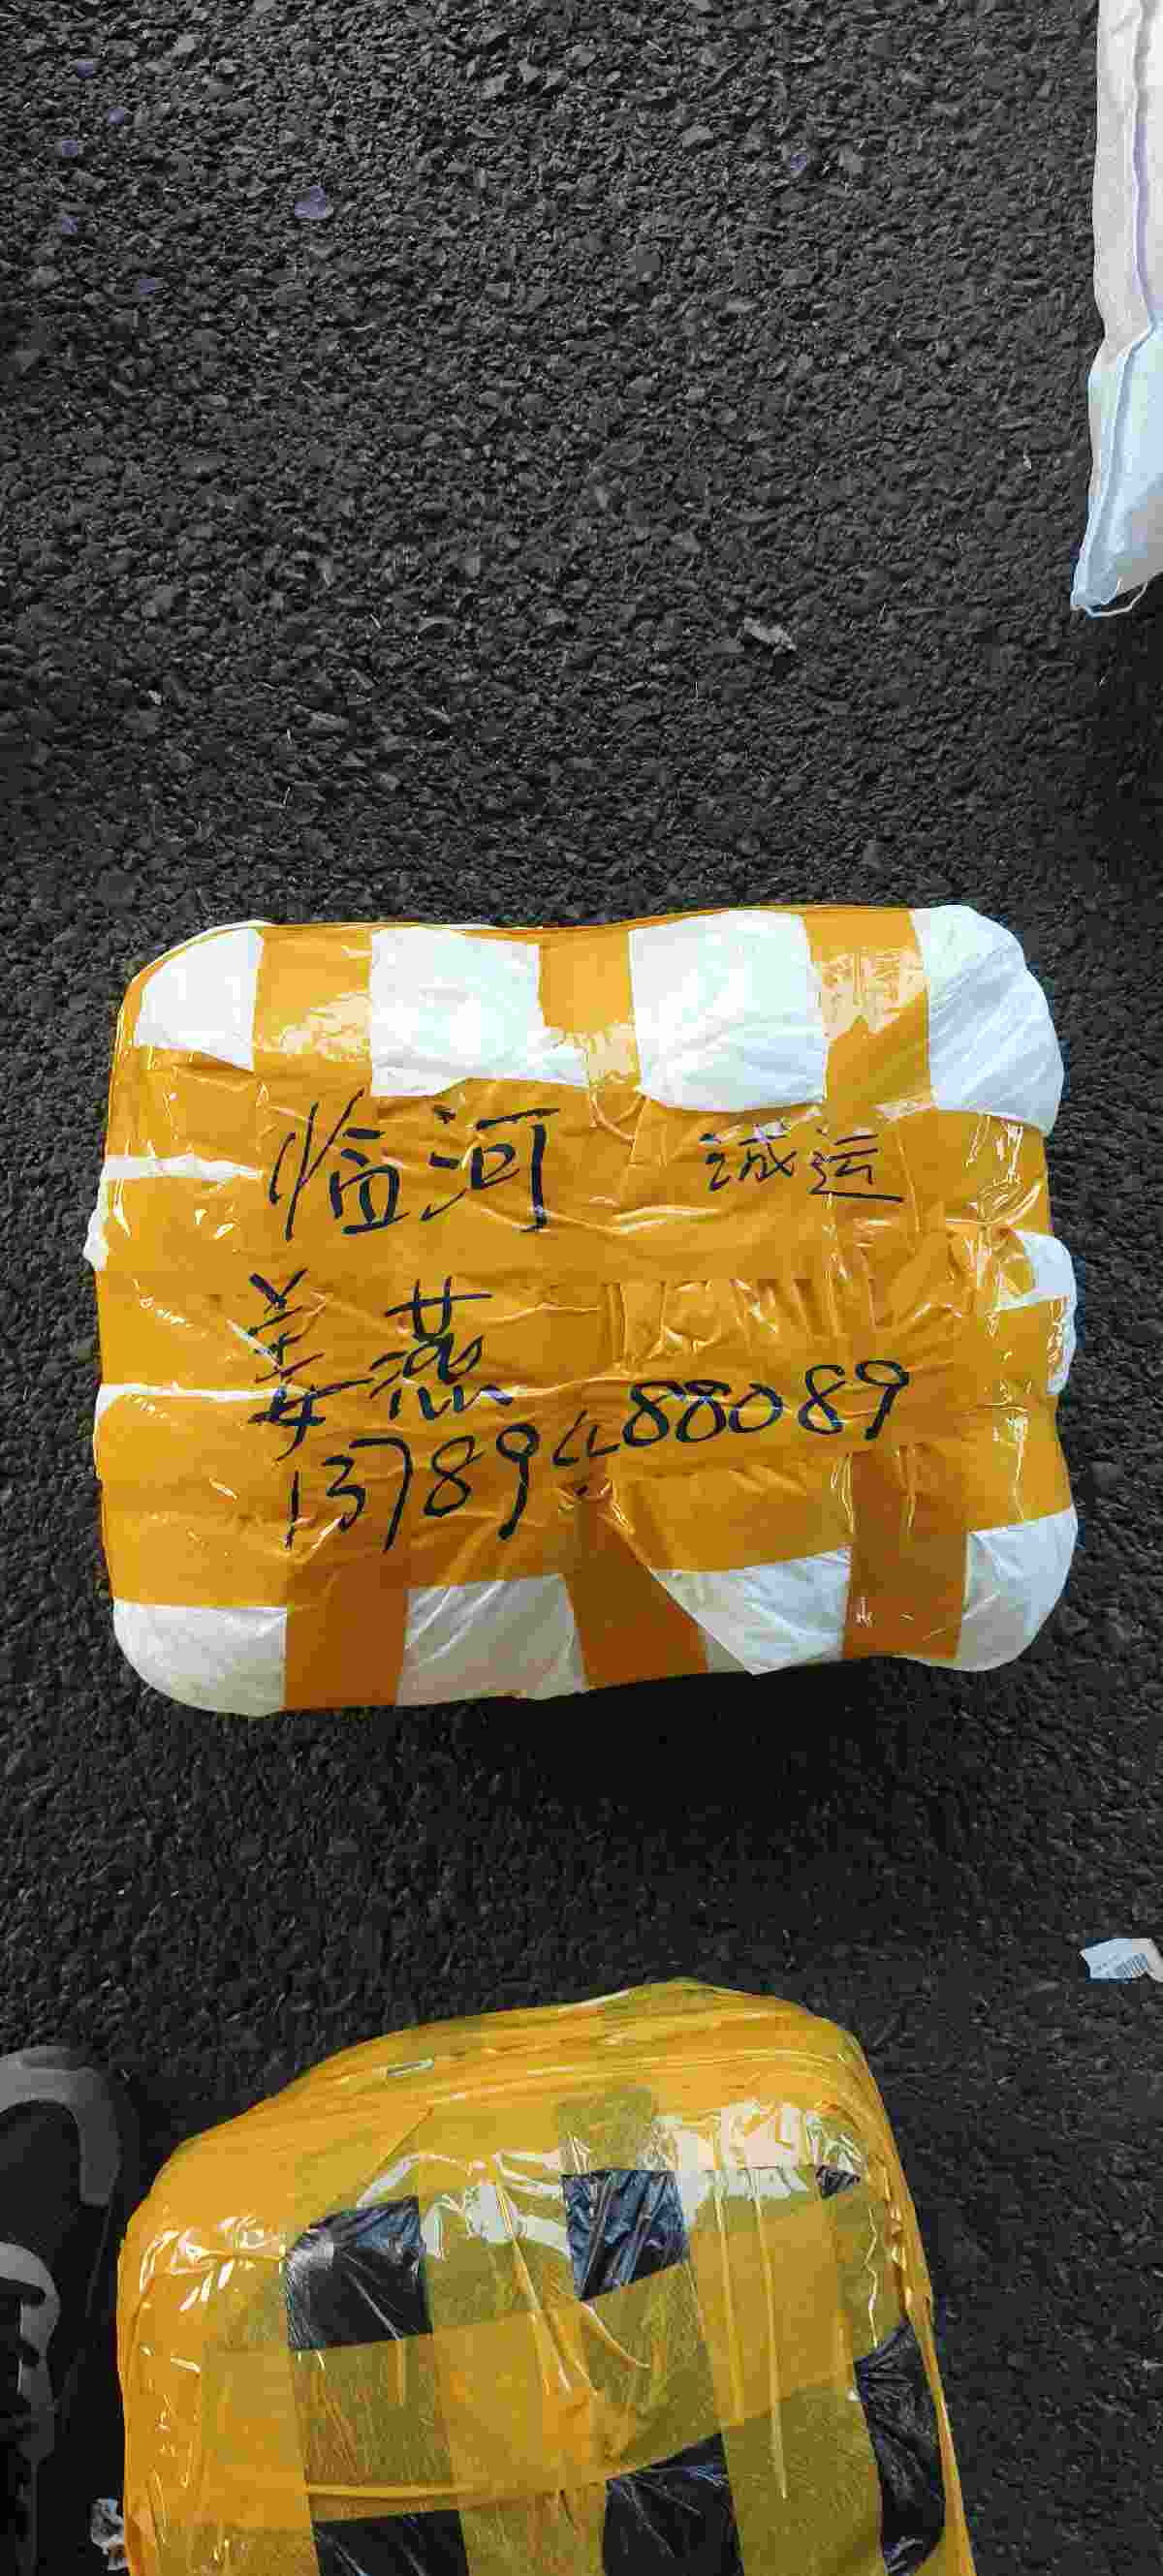 临河 诚运
姜燕
13789488089